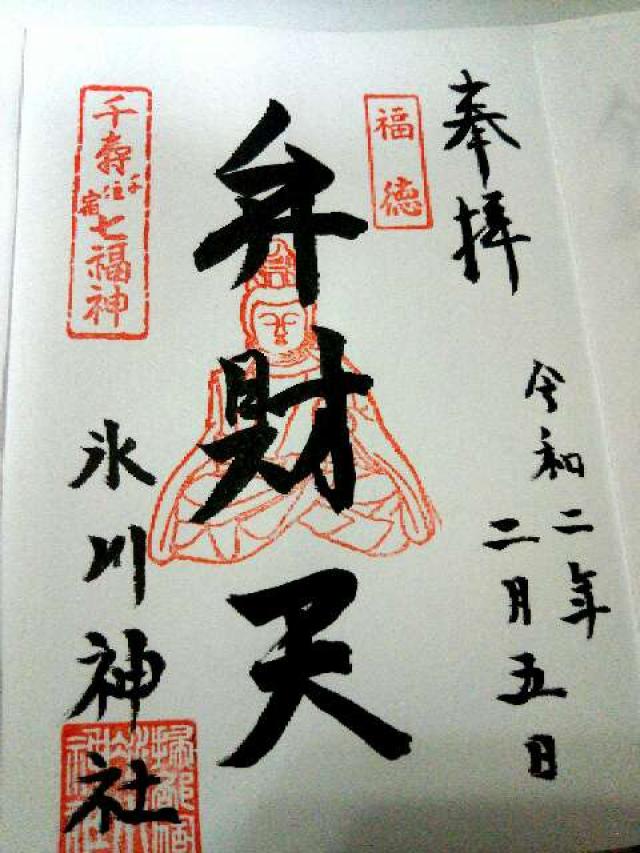 奉拝
令和二年
二月五日
福徳
弁財天
千寿七福神
千住宿
氷川神社